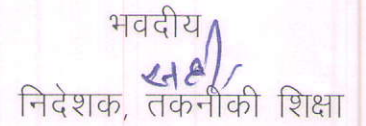 भवदीय
सही/
निदेशक, तकनीकी शिक्षा